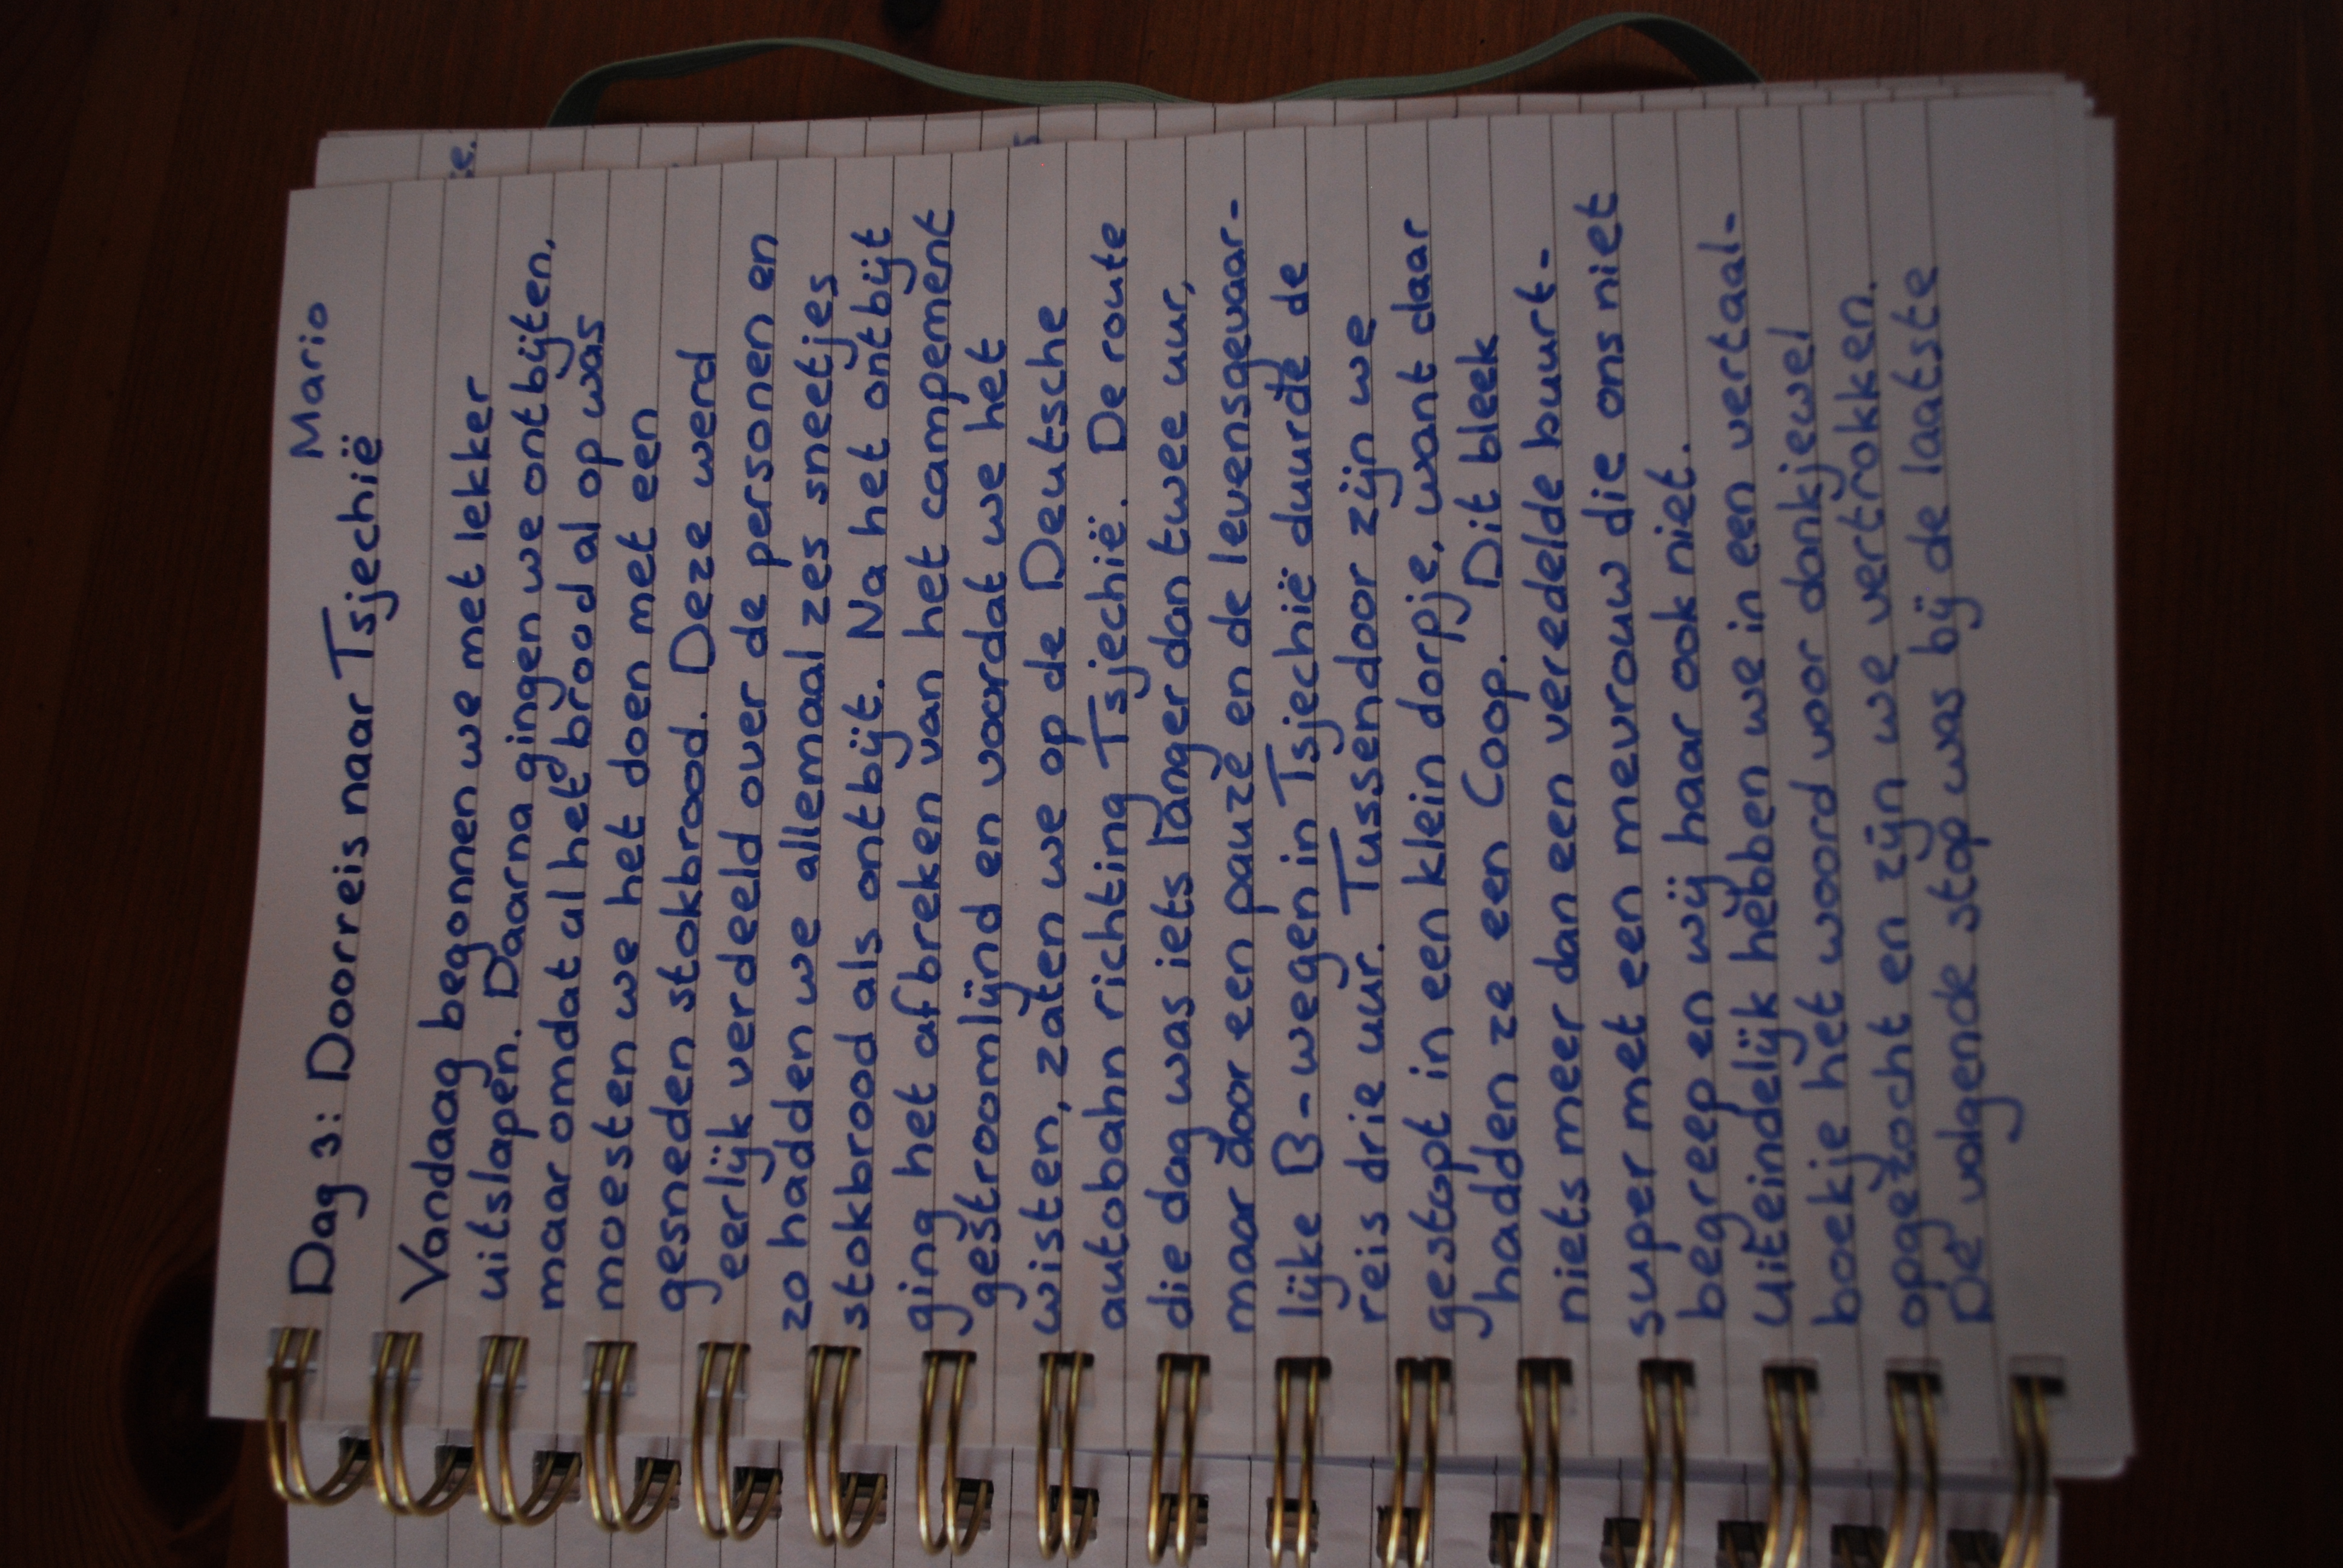 Mario
Dag 3: Doorreis naar Tsjechië
Vandaag begonnen we met lekker
uitslapen. Daarna gingen we ontbijten,
maar omdat al het brood al op was
moesten we het doen met een
gesneden stokbrood. Deze werd
eerlijk verdeeld over de personen en
zo hadden we allemaal zes sneetjes
stokbrood als ontbijt. Na het ontbijt
ging het afbreken van het campement
gestroomlijnd en voordat we het
wisten, zaten we op de Deutsche
autobahn richting Tsjechië. De route
die dag was iets langer dan twee uur,
maar door een pauze en de levensgevaar-
lijke B-wegen in Tsjechië duurde de
reis drie uur. Tussendoor zijn we
gestopt in een klein dorpje, want daar
hadden ze een Coop. Dit bleek
niets meer dan een veredelde buurt-
super met een mevrouw die ons niet
begreep en wij haar ook niet.
Uiteindelijk hebben we in een vertaal-
boekje het woord voor dankjewel
opgezocht en zijn we vertrokken.
De volgende stop was bij de laatste
se.
s